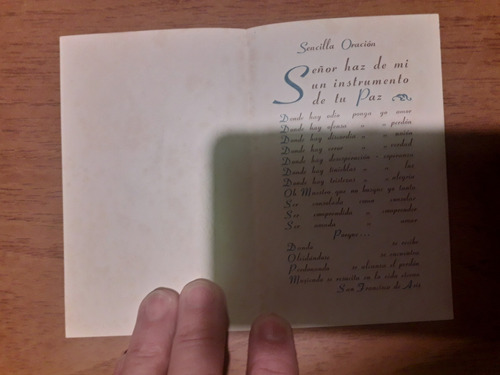 Sencilla Oración
Señor haz de mi
un instrumento
de tu Paz
Donde hay odio ponga yo amor
Donde hay ofensa " " perdón
Donde hay discordia " " unión
Donde hay error " " verdad
Donde hay desesperación - esperanza
Donde hay tinieblas " " luz
Donde hay tristeza " " alegría
Oh Maestro que no busque yo tanto
Ser consolado como consolar
Ser comprendido " comprender
Ser amado " amar
Porque...
Dando se recibe
Olvidándose se encuentra
Perdonando se alcanza el perdón
Muriendo se resucita en la vida eterna
San Francisco de Asís